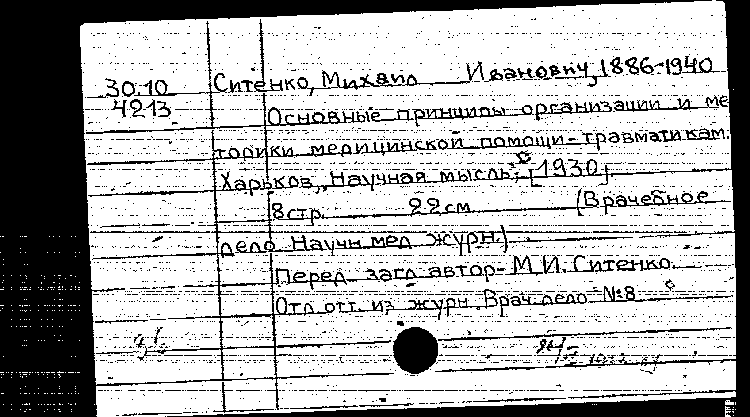 30.10 Ситенко, Михаил Иванович, 1886-1940
4213 Основные принципы организации и ме
торики медицинской помощи-травматикам.
Харьков, „Научная мысль", [1930]
8 стр. 22 см. (Врачебное
дело Научн мед журн.)
Перед загл автор-М. И. Ситенко.
Отд отт. из журн. Врач. дело №8